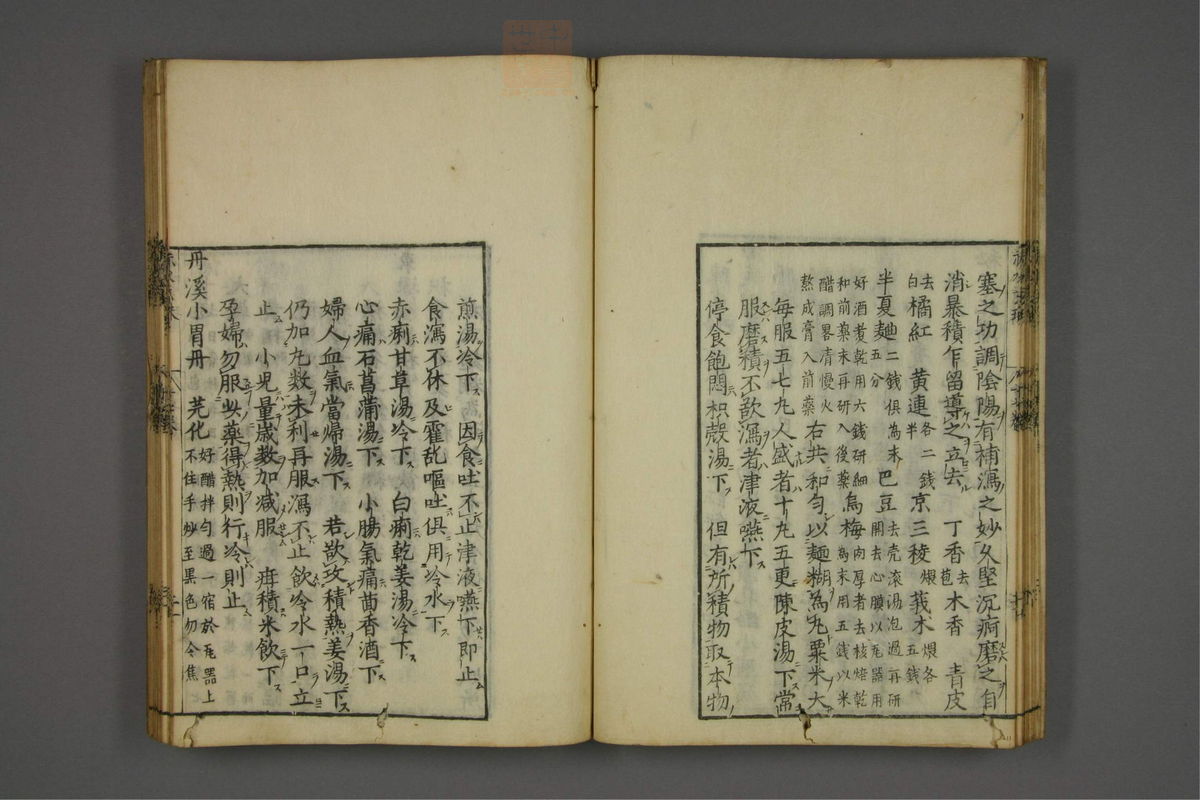 塞之功調陰陽有補瀉之妙久堅沉痾磨之自
消暴積乍留導之立去 丁香去苞木香 青皮
去白橘紅 黄連各二錢半京三稜煨莪术煨各五錢
半夏麯二錢五分俱為末 巴豆去壳滚湯泡過再研開去心膜以瓦器用
好酒煑乾用六錢研細和前薬末再研入後薬烏梅肉厚者去核焙乾為末用五錢以米
醋調畧清慢火熬成膏入前薬右共和匀以麵糊為丸粟米大
每服五七九人盛者十九五更陳皮湯下常
服磨積不欲瀉者津液嚥下
停食飽悶枳殼湯下 但有所積物取本物
煎湯冷下 因食吐不止津液嚥下即止
食瀉不休及霍乱嘔吐俱用冷水下
赤痢甘草湯冷下 白痢乾姜湯冷下
心痛石菖蒲湯下 小腸氣痛茴香酒下
婦人血氣當帰湯下 若欲攻積熱姜湯下
仍加丸数未利再服瀉不止飲冷水一口立
止 小児量歳数加减服 疳積米飲下
孕婦勿服此薬得熱則行冷則止
丹溪小胃丹 芫化好醋拌匀過一宿於瓦器上不住手炒至黒色勿令焦